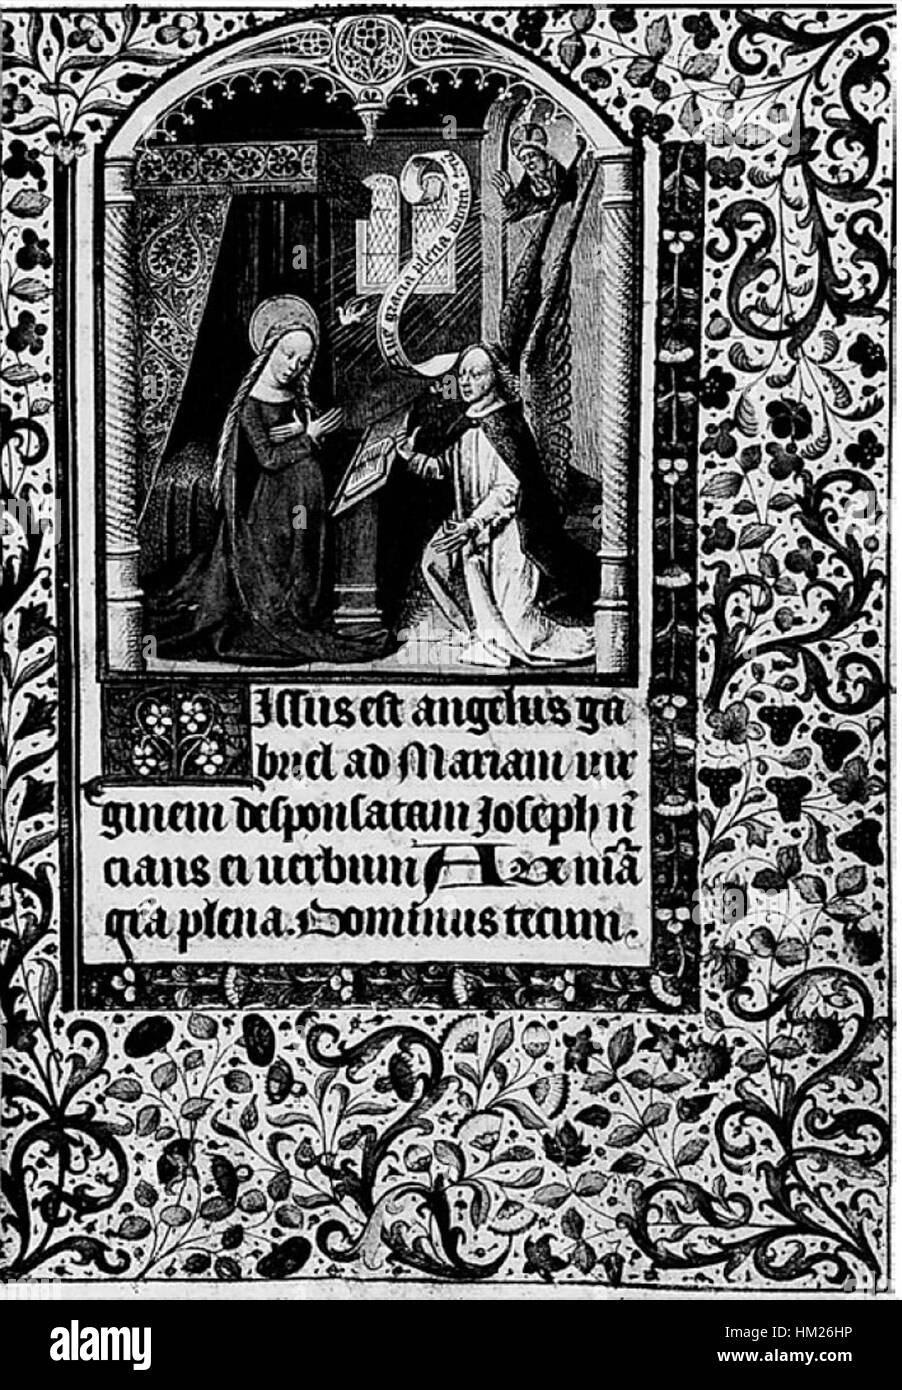 Aue gracia plena dominus tecum
Missus est angelus ga
briel ad Mariam vir
ginem desponsatam Joseph nū
cians ei uerbum Ave mīa
gīa plena. Dominus tecum.
alamy
Image ID: HM26HP
www.alamy.com